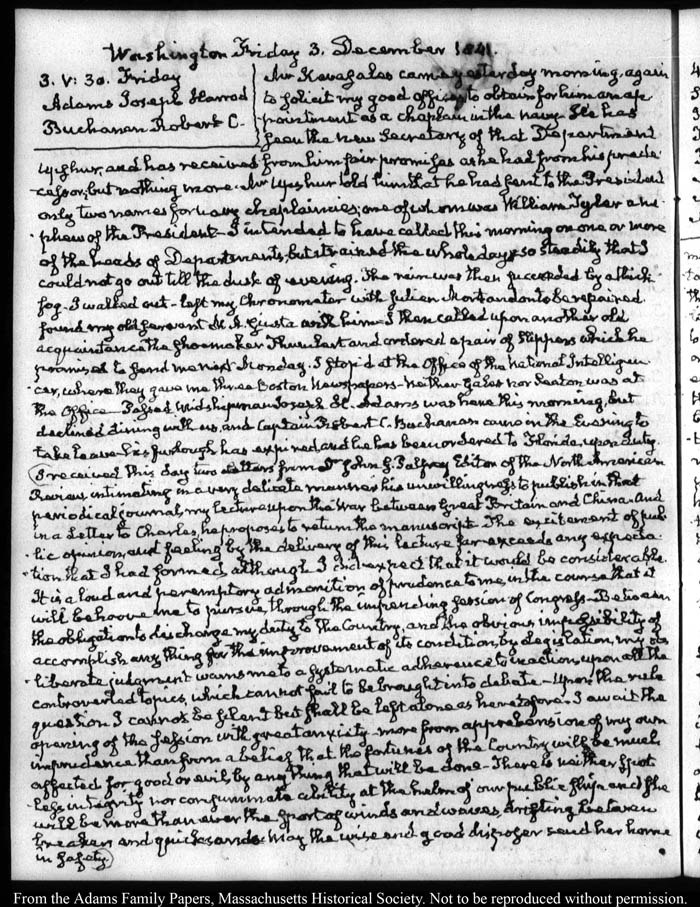 Washington Friday 3. December 1841.
3. V: 30. Friday
Adams Joseph Harrod
Buchanan Robert C.
Mr came yesterday morning, again
to solicit my good offices, to obtain for him an ap
pointment as a chaplain in the navy. He has
seen the new Secretary of that Department
Upshur, and has received from him fair promises as he had from his prede
-cessor; but nothing more. Mr Upshur told him that he had sent to the President
only two names for navy chaplaincies; one of whom was William Tyler a ne-
-phew of the President. I intended to have called this morning on one or more
of the heads of Departments, but it rained the whole day so steadily that I
could not go out till the dusk of evening. The rain was then succeeded by a thick
fog. I walked out - left my Chronometer with Julien to be repaired
found my old servant M. A. Giusta with him - I then called upon another old
acquaintance the shoemaker and ordered a pair of slippers which he
promised to send me next Monday. I stop'd at the Office of the National Intelligen
-cer, where they gave me three Boston Newspapers - neither Gales nor Seaton was at
the Office - Passed Midshipman Joseph H. Adams was here this morning, but
declined dining with us, and Captain Robert C. Buchanan came in the Evening to
take leave - his furlough has expired and he has been ordered to Florida, upon duty.
I received this day two letters from Dr John G. Palfrey Editor of the North American
Review, intimating in a very delicate manner his unwillingness to publish in that
periodical journal, my lecture upon the War between Great Britain and China - And
in a Letter to Charles, he proposes to return the manuscript. The excitement of pub-
-lic opinion and feeling by the delivery of this lecture far exceeds any expecta
-tion that I had formed, although I did expect that it would be considerable.
It is a loud and peremptory admonition of prudence to me, in the course that it
will behoove me to pursue, through the impending Session of Congress - Between
the obligation to discharge my duty to the Country, and the obvious impossibility of
accomplishing any thing for the improvement of its condition, by legislation, my de
-liberate judgment warns me to a systematic adherence to inaction, upon all the
controverted topics, which cannot fail to be brought into debate - Upon the rule
question I cannot be silent but shall be left alone as heretofore. I await the
opening of the Session with great anxiety - more from apprehension of my own
imprudence than from a belief that the fortunes of the Country will be much
affected for good or evil, by any thing that will be done - There is neither spot
-less integrity nor consummate ability at the helm of our public ship and she
will be more than ever the sport of winds and waves, drifting between
breakers and quicksands - May the wise and good disposer send her home
in safety
From the Adams Family Papers, Massachusetts Historical Society. Not to be reproduced without permission.